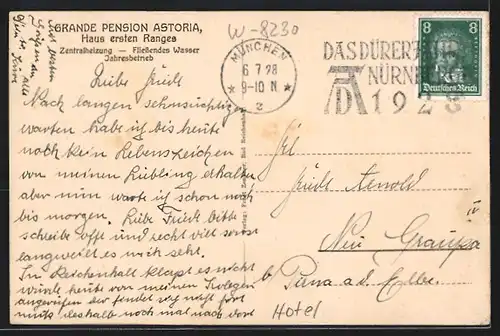 GRANDE PENSION ASTORIA,
Haus ersten Ranges
Zentralheizung — Fließendes Wasser
Jahresbetrieb
W-8230
MÜNCHEN
6 7 28
9-10 N
2
DAS DÜRER
NÜRN
AD
1928
8
Deutsches Reich
Liebe Friedl
Nach langen sehnsüchtigen
warten habe ich bis heute
noch kein Lebenszeichen
von meinen Liebling erhalten
aber nun warte ich schon noch
bis morgen. Liebe Friedl bitte
schreibe oft und recht viel sonst
langweilt es mich sehr.
In Reichenhall klappt es nicht
wurde heute von meinen Kolegen
angerufen der findet
muß deshalb noch mal nach dort
Frl
Friedl Arnold
Neu Graupa
b. Pirna a. d. Elbe.
Hotel